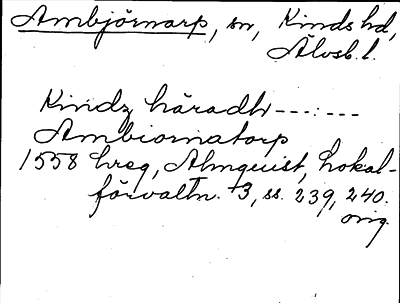 Ambjörnarp, sn, Kinds hd,
Älvsb. l.
Kindz häradh ---:---
Ambiornatorp
1558 hreg, Almquist, Lokal-
förvaltn. +3, ss. 239, 240.
orig.